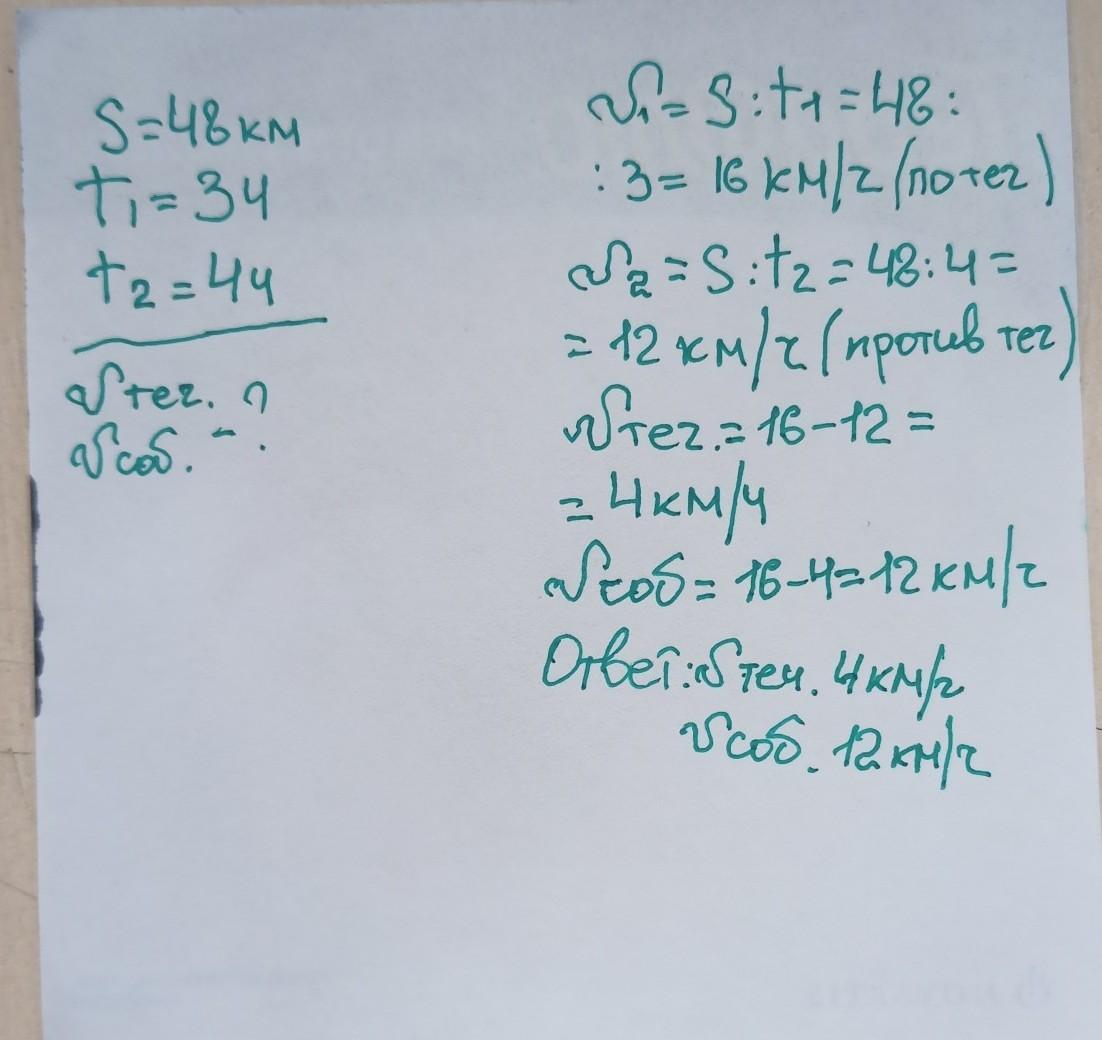 S=48км
t₁=3ч
t₂=4ч
Vтеч. ?
Vсоб. - .
V₁= S:t₁=48:
:3= 16 км/ч (по теч)
V₂=S:t₂=48:4=
= 12 км/ч (против теч)
Vтеч.=16-12=
= 4км/ч
Vсоб= 16-4=12км/ч
Ответ: Vтеч. 4км/ч
Vсоб. 12км/ч